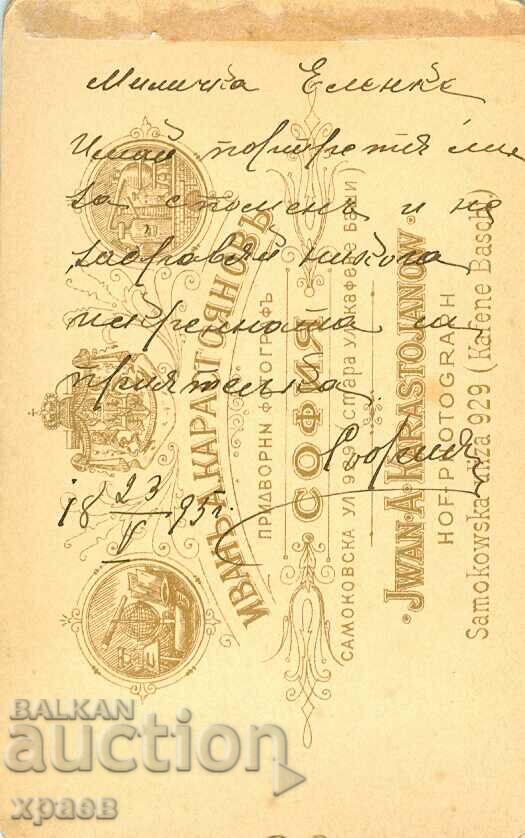 Миличка Еленке
Имай портретя ми
за споменъ и не
забравяй никога
искренната си
приятелка.
София
18 23/V 95 г.
ИВАНЪ А. КАРАСТОЯНОВЪ
ПРИДВОРНИ ФОТОГРАФЪ
СОФИЯ
САМОКОВСКА УЛ 929
JWAN·A·KARASTOJANOW·
HOF-PHOTOGRAPH
Samokowska uliza 929 (Kafene Basch)
BALKAN
auction
храев